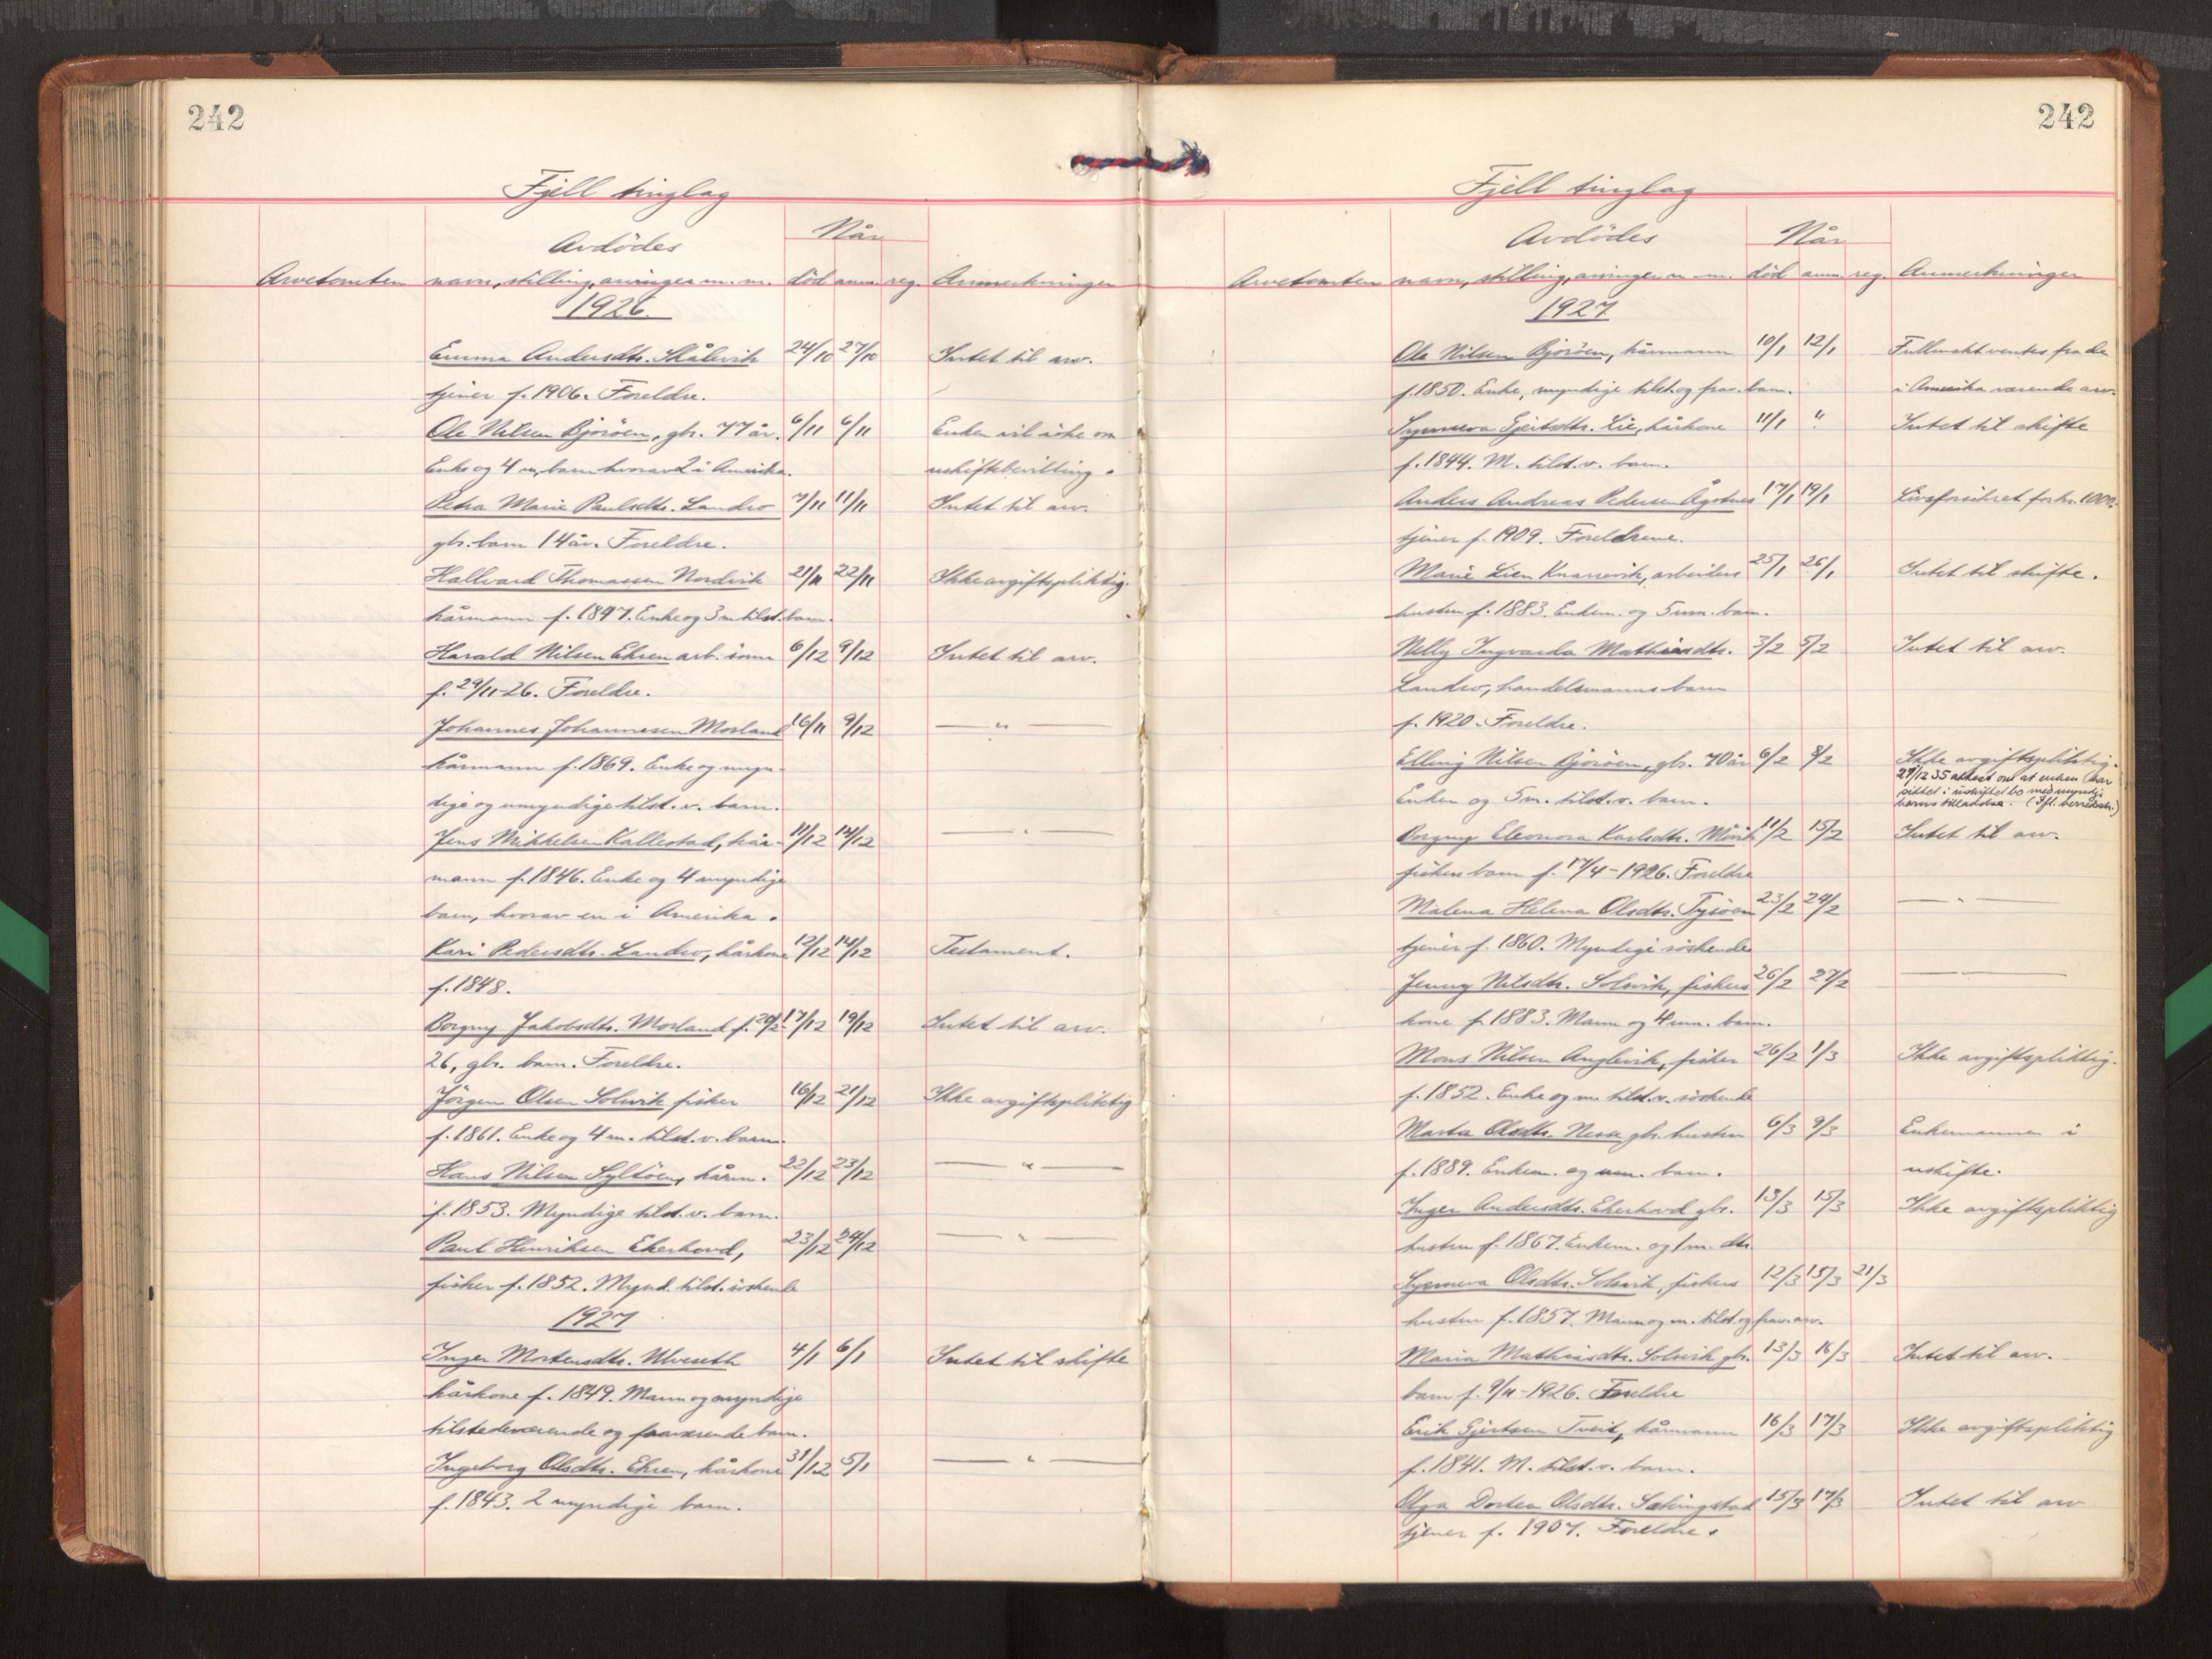 242
Fjell tinglag
Avdödes
Når
Arvetomten navn, stilling, arvinger m. m. död anm. reg. Anmerkninger
1926.
Emma Andersdtr. Skålevik 24/10 27/10 Intet til arv.
tjener f. 1906. Foreldre.
Ole Nilsen Bjoröen, gbr. 77 år. 6/11 6/11 Enken vil söke om
Enke og 4 m. barn hvorav 2 i Amerika. uskiftebevilling.
Petra Marie Paulsdtr. Landro 7/11 11/11 Intet til arv.
gbr. barn 14 år. Foreldre.
Hallvard Thomassen Nordvik 21/11 22/11 Ikke avgiftspliktig.
kårmann f. 1847. Enke og 3 m. tilst. barn.
Harald Nilsen Ekren arb. sönn 6/12 9/12 Intet til arv.
f. 29/11-26. Foreldre.
Johannes Johannesen Morland 16/11 9/12 — " —
kårmann f. 1869. Enke og myn-
dige og umyndige tilst. v. barn.
Jens Mikkelsen Kallestad, kår- 11/12 14/12 — " —
mann f. 1846. Enke og 4 myndige
barn, hvorav en i Amerika.
Kari Pedersdtr. Landro, kårkone 12/12 14/12 Testament.
f. 1848.
Borgny Jakobsdtr. Morland f. 20/2- 17/12 19/12 Intet til arv.
26, gbr. barn. Foreldre.
Jörgen Olsen Solsvik fisker 16/12 21/12 Ikke avgiftspliktig
f. 1861. Enke og 4 m. tilst. v. barn.
Hans Nilsen Syltöen, kårm. 22/12 23/12 — " —
f. 1853. Myndige tilst. v. barn.
Paul Henriksen Ekerhovd, 23/12 24/12 — " —
fisker f. 1852. Mynd. tilst. söskende
1927
Inger Mortensdtr. Ulveseth 4/1 6/1 Intet til skifte
kårkone f. 1849. Mann og myndige
tilstedeværende og fraværende barn.
Ingeborg Olsdtr. Ekren, kårkone 31/12 5/1 — " —
f. 1843. 2 myndige barn.
242
Fjell tinglag
Avdödes
Når
Arvetomten navn, stilling, arvinger m. m. död anm. reg. Anmerkninger
1927
Ole Nilsen Bjoröen, kårmann 10/1 12/1 Fullmakt ventes fra de
f. 1850. Enke, myndige tilst. og frav. barn. i Amerika værende arv.
Synneva Gjertsdtr. Lie, kårkone 11/1 " Intet til skifte
f. 1844. M. tilst. v. barn.
Anders Andreas Pedersen Ågotnes 17/1 19/1 Livsforsikret for kr. 1000.-
tjener f. 1909. Foreldrene.
Marie Lien Knarrevik, arbeiders 25/1 26/1 Intet til skifte.
hustru f. 1883. Enkem. og 5 um. barn.
Nelly Ingvarda Mathiasdtr. 3/2 5/2 Intet til arv.
Landro, handelsmanns barn
f. 1920. Foreldre.
Elling Nilsen Bjoröen, gbr. 70 år 6/2 8/2 Ikke avgiftspliktig.
27/12 35 attest om at enken har
sittet i uskiftet bo med myndige
Enken og 5 m. tilst. v. barn. barns tilladelse.
Borgny Eleonora Karlsdtr. Mövik 11/2 15/2 Intet til arv.
fiskers barn f. 17/4-1926. Foreldre
Malena Helena Olsdtr. Tysöen 23/2 24/2 — " —
tjener f. 1860. Myndige söskende
Jenny Nilsdtr. Solsvik, fiskers 26/2 27/2 — " —
kone f. 1883. Mann og 4 um. barn.
Mons Nilsen Anglevik, fisker 26/2 1/3 Ikke avgiftspliktig.
f. 1852. Enke og m. tilst. v. söskende
Marta Olsdtr. Nese gbr. hustru 6/3 9/3 Enkemannen i
f. 1889. Enkem. og um. barn. uskifte.
Inger Andersdtr. Ekerhovd gbr. 13/3 15/3 Ikke avgiftspliktig
hustru f. 1867. Enkem. og 1 m. dtr.
Synneva Olsdtr. Solsvik, fiskers 12/3 15/3 21/3
hustru f. 1857. Mann og m. tilst. og frav. arv.
Maria Mathiasdtr. Solsvik gbr. 13/3 16/3 Intet til arv.
barn f. 9/11-1926. Foreldre
Erik Gjertsen Tveit, kårmann 16/3 17/3 Ikke avgiftspliktig
f. 1841. M. tilst. v. barn.
Olga Dortea Olsdtr. Sekingstad 15/3 17/3 Intet til arv
tjener f. 1907. Foreldre.